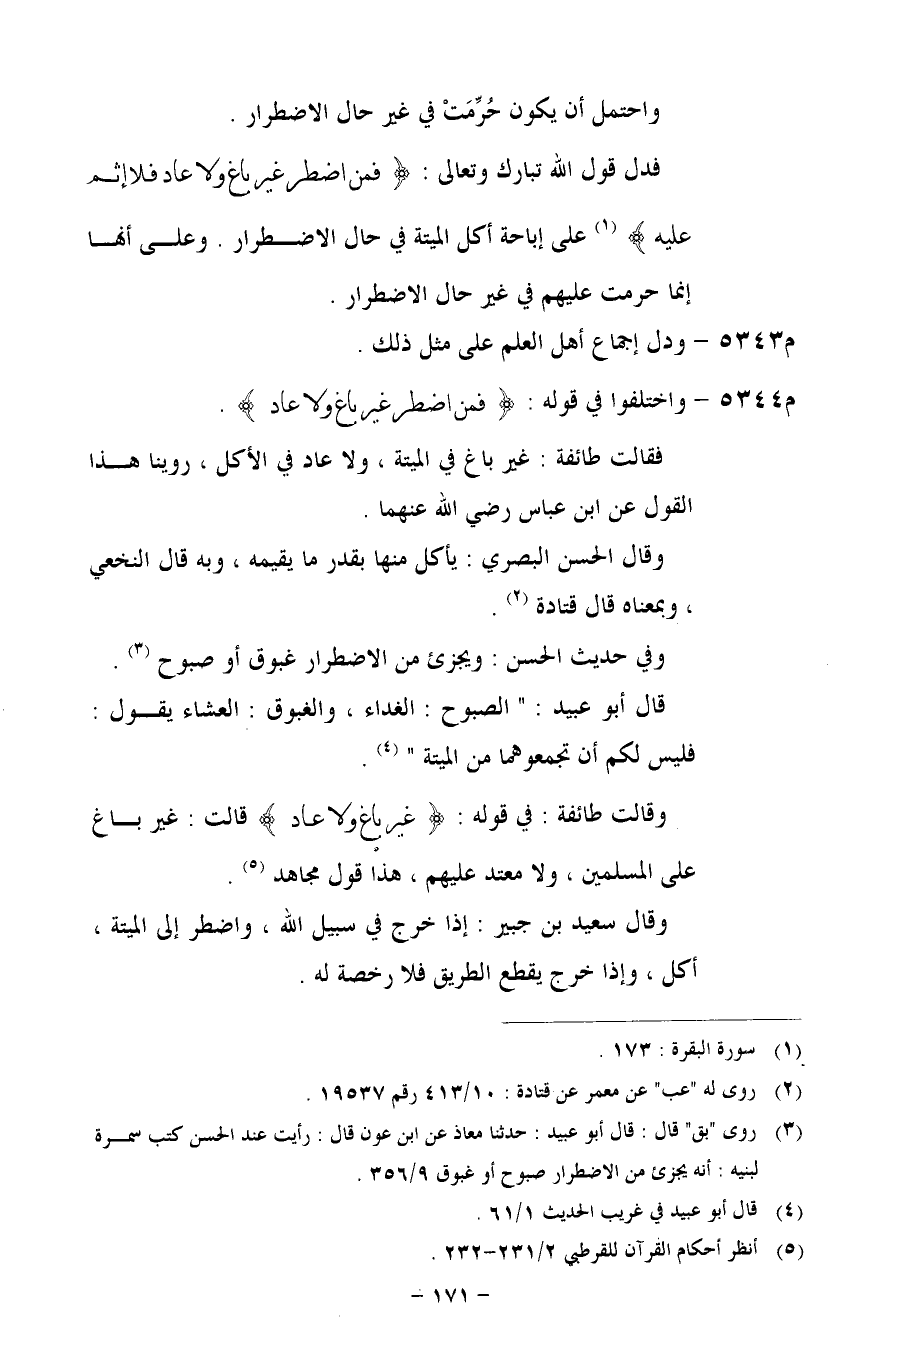 واحتمل أن يكون حُرِّمَتْ في غير حال الاضطرار .
فدل قول الله تبارك وتعالى : ﴿ فمن اضطر غير باغ ولا عاد فلا إثـم
عليه ﴾ (١) على إباحة أكل الميتة في حال الاضـــطرار . وعلـــى أنهـــا
إنما حرمت عليهم في غير حال الاضطرار .
م٥٣٤٣ – ودل إجماع أهل العلم على مثل ذلك .
م٥٣٤٤ – واختلفوا في قوله : ﴿ فمن اضطر غير باغ ولا عاد ﴾ .
فقالت طائفة : غير باغ في الميتة ، ولا عاد في الأكل ، روينا هـــذا
القول عن ابن عباس رضي الله عنهما .
وقال الحسن البصري : يأكل منها بقدر ما يقيمه ، وبه قال النخعي
، وبمعناه قال قتادة (٢) .
وفي حديث الحسن : ويجزئ من الاضطرار غبوق أو صبوح (٣) .
قال أبو عبيد : " الصبوح : الغداء ، والغبوق : العشاء يقـــول :
فليس لكم أن تجمعوهما من الميتة " (٤) .
وقالت طائفة : في قوله : ﴿ غير باغ ولا عاد ﴾ قالت : غير بـــاغ
على المسلمين ، ولا معتد عليهم ، هذا قول مجاهد (٥) .
وقال سعيد بن جبير : إذا خرج في سبيل الله ، واضطر إلى الميتة ،
أكل ، وإذا خرج يقطع الطريق فلا رخصة له .
(١) سورة البقرة : ١٧٣ .
(٢) روى له "عب" عن معمر عن قتادة : ٤١٣/١٠ رقم ١٩٥٣٧ .
(٣) روى "بق" قال : قال أبو عبيد : حدثنا معاذ عن ابن عون قال : رأيت عند الحسن كتب سمـــرة
لبنيه : أنه يجزئ من الاضطرار صبوح أو غبوق ٣٥٦/٩ .
(٤) قال أبو عبيد في غريب الحديث ٦١/١ .
(٥) أنظر أحكام القرآن للقرطبي ٢٣١/٢–٢٣٢ .
– ١٧١ –